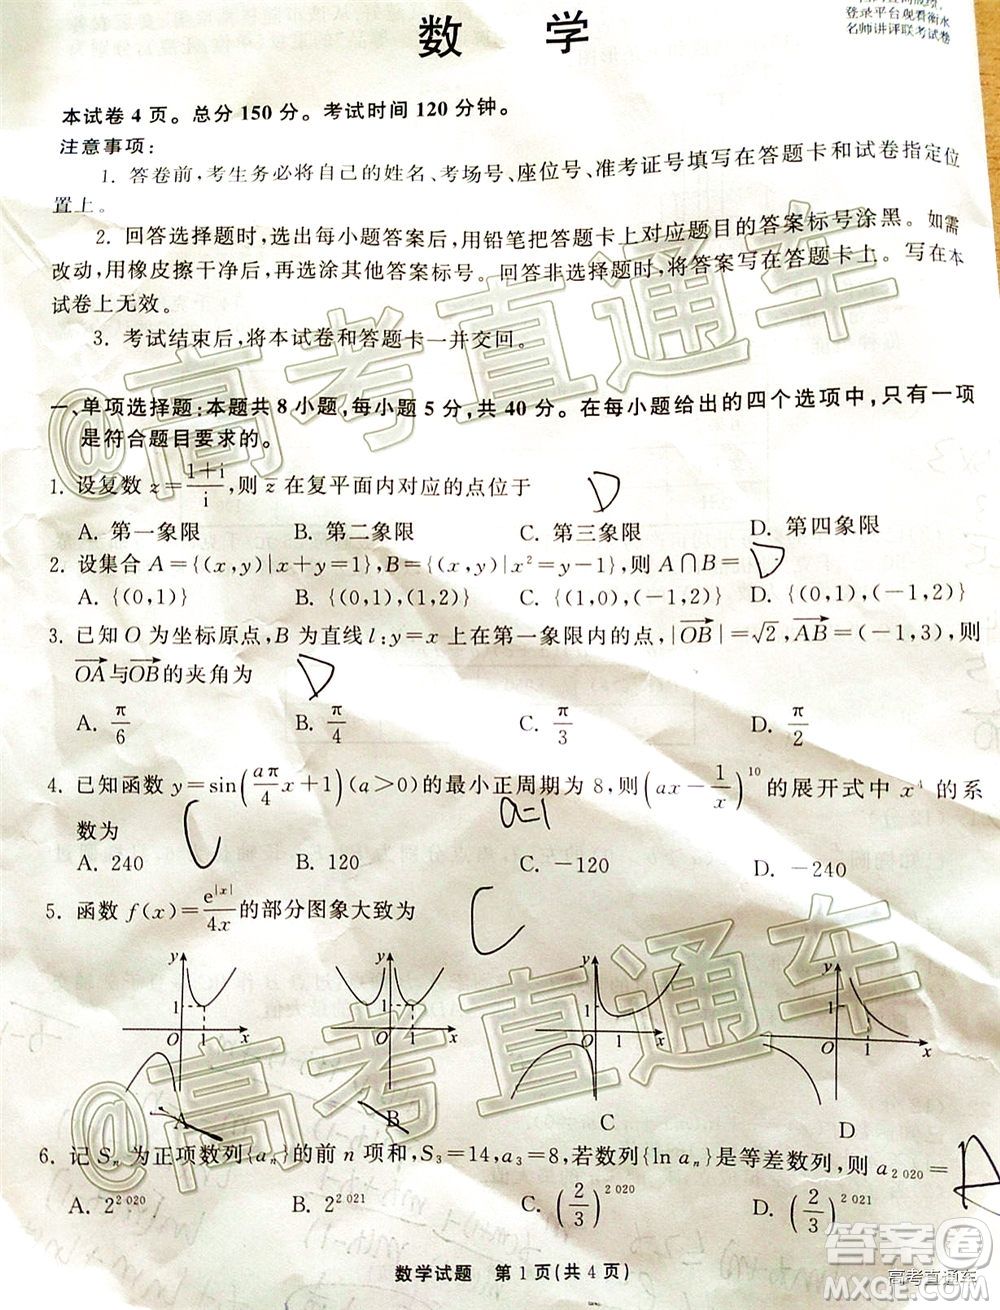 数 学
登录平台观看衡水
名师讲评联考试卷
本试卷4页。总分150分。考试时间120分钟。
注意事项:
1. 答卷前,考生务必将自己的姓名、考场号、座位号、准考证号填写在答题卡和试卷指定位
置上。
2. 回答选择题时,选出每小题答案后,用铅笔把答题卡上对应题目的答案标号涂黑。如需
改动,用橡皮擦干净后,再选涂其他答案标号。回答非选择题时,将答案写在答题卡上。写在本
试卷上无效。
3. 考试结束后,将本试卷和答题卡一并交回。
一、单项选择题:本题共8小题,每小题5分,共40分。在每小题给出的四个选项中,只有一项
是符合题目要求的。
1. 设复数 z=(1+i)/i,则 z̄ 在复平面内对应的点位于 D
A. 第一象限 B. 第二象限 C. 第三象限 D. 第四象限
2. 设集合 A={(x,y)|x+y=1},B={(x,y)|x²=y−1},则 A∩B= D
A. {(0,1)} B. {(0,1),(1,2)} C. {(1,0),(−1,2)} D. {(0,1),(−1,2)}
3. 已知 O 为坐标原点,B 为直线 l:y=x 上在第一象限内的点,|OB|=√2,AB=(−1,3),则
OA与OB的夹角为 D
A. π/6 B. π/4 C. π/3 D. π/2
4. 已知函数 y=sin(aπ/4 x+1)(a>0)的最小正周期为 8,则(ax−1/x)¹⁰的展开式中 x⁴ 的系
数为 C a=1
A. 240 B. 120 C. −120 D. −240
5. 函数 f(x)=e^|x|/4x 的部分图象大致为 C
y 1 O 1 x
y 1 O 1 x
y 1 O 1 x
y 1 O 1 x
A B C D
6. 记 Sₙ 为正项数列{aₙ}的前 n 项和,S₃=14,a₃=8,若数列{ln aₙ}是等差数列,则 a₂ ₀₂₀= A
A. 2^2 020 B. 2^2 021 C. (2/3)^2 020 D. (2/3)^2 021
数学试题 第1页(共4页)
@高考直通车
@高考直通车
答案圈
高考直通车
MXQE.COM